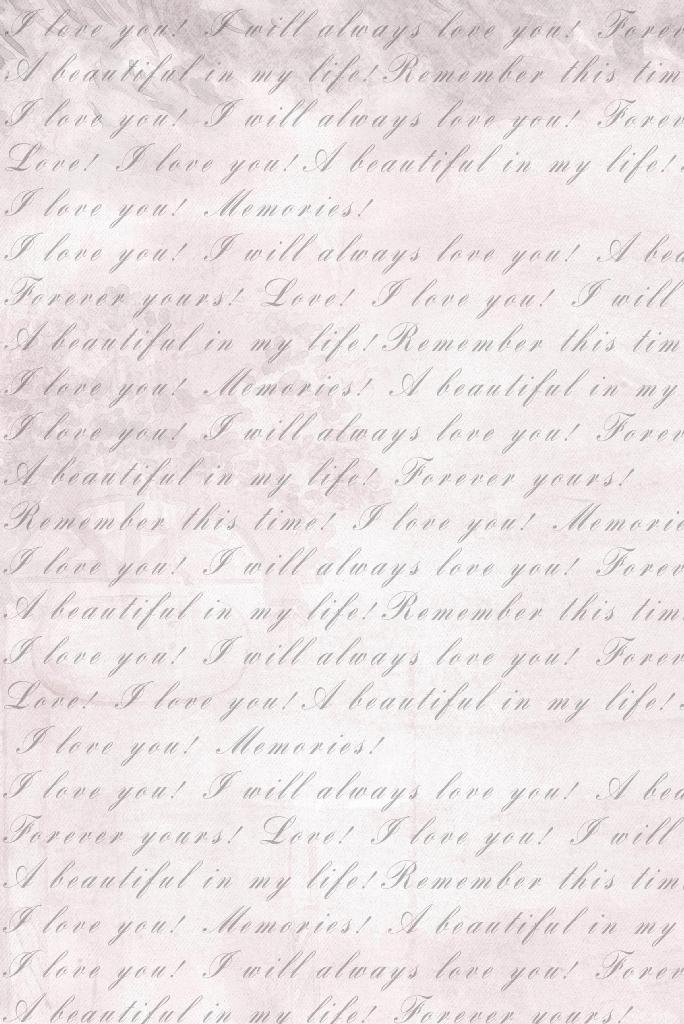 I love you! I will always love you! Forev
A beautiful in my life! Remember this tim
I love you! I will always love you! Forev
Love! I love you! A beautiful in my life!
I love you! Memories!
I love you! I will always love you! A bea
Forever yours! Love! I love you! I will
A beautiful in my life! Remember this tim
I love you! Memories! A beautiful in my
I love you! I will always love you! Forev
A beautiful in my life! Forever yours!
Remember this time! I love you! Memorie
I love you! I will always love you! Forev
A beautiful in my life! Remember this tim
I love you! I will always love you! Forev
Love! I love you! A beautiful in my life!
I love you! Memories!
I love you! I will always love you! A bea
Forever yours! Love! I love you! I will
A beautiful in my life! Remember this tim
I love you! Memories! A beautiful in my
I love you! I will always love you! Forev
A beautiful in my life! Forever yours!